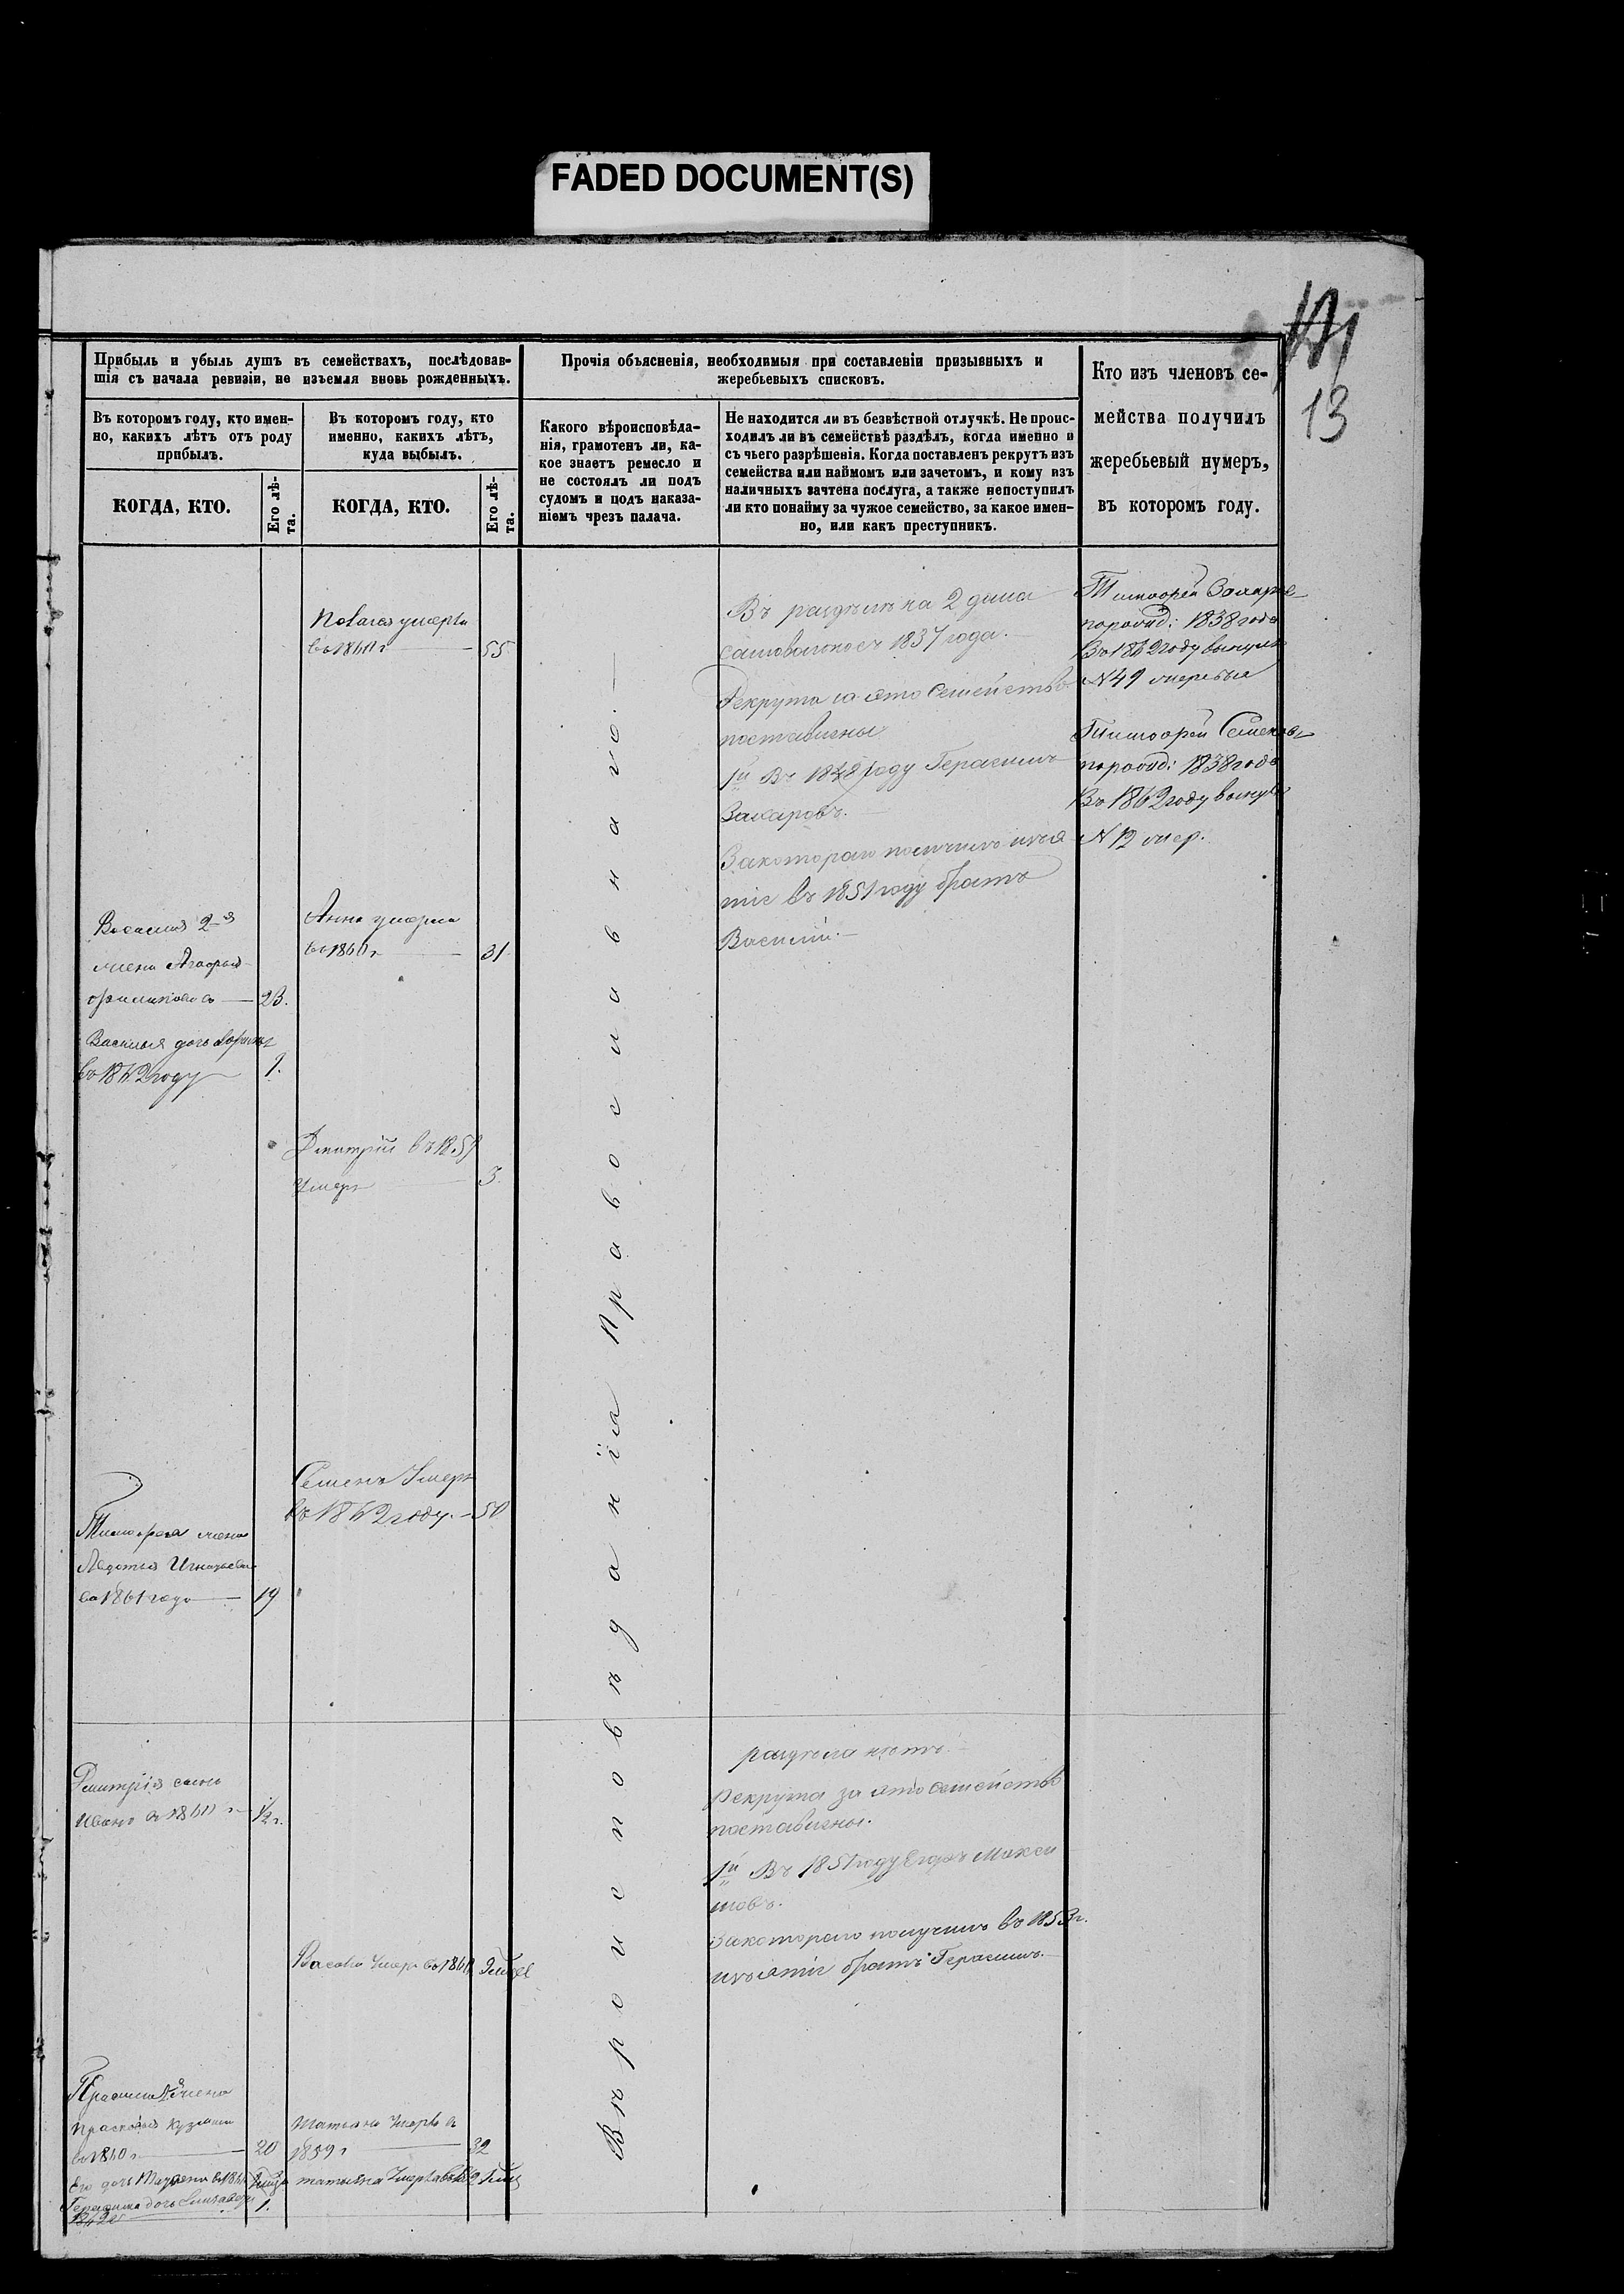 FADED DOCUMENT(S)
13
Прибыль и убыль душъ въ семействахъ, послѣдовав-
шія съ начала ревизіи, не изъемля вновь рожденныхъ.
Прочія объясненія, необходимыя при составленіи призывныхъ и
жеребьевыхъ списковъ.
Кто изъ членовъ се-
мейства получилъ
жеребьевый нумеръ,
въ которомъ году.
Въ которомъ году, кто имен-
но, какихъ лѣтъ отъ роду
прибылъ.
Въ которомъ году, кто
именно, какихъ лѣтъ,
куда выбылъ.
Какого вѣроисповѣда-
нія, грамотенъ ли, ка-
кое знаетъ ремесло и
не состоялъ ли подъ
судомъ и подъ наказа-
ніемъ чрезъ палача.
Не находится ли въ безвѣстной отлучкѣ. Не проис-
ходилъ ли въ семействѣ раздѣлъ, когда именно и
съ чьего разрѣшенія. Когда поставленъ рекрутъ изъ
семейства или наймомъ или зачетомъ, и кому изъ
наличныхъ зачтена послуга, а также непоступилъ
ли кто понайму за чужое семейство, за какое имен-
но, или какъ преступникъ.
КОГДА, КТО.
Его лѣ-
та.
КОГДА, КТО.
Его лѣ-
та.
умерла
въ 1860 г 55
Анна умерла
въ 1860 г 31
Василія 2й
жена Агафья
23.
Василья дочь
въ 1862 году 1.
Дмитрій въ 1859
умеръ 3
Семенъ Умеръ
въ 1862 году. 50
Тимофея жена
Авдотья Игнатьева
въ 1861 году 19
Дмитрія сынъ
Иванъ въ 1860 г 1/2 г.
Умеръ въ 1860
жена
Прасковья Кузмина
въ 1860 г 20
Татьяна Умерла въ
1859 г 32
Его дочь
Татьяна Умерла
Герасима дочь
1862 г 1.
Вѣроисповѣданія Православнаго.
Въ раздѣлѣ на 2 дома
самовольно съ 1837 года.
Рекрута за это Семейство
поставлены
1й Въ 1848 году Герасимъ
Захаровъ.
За котораго получилъ изъя
тіе въ 1851 году братъ
Василій.
раздѣла нѣтъ.
Рекрута за это Семейство
поставлены.
1й Въ 1851 году Егоръ Макси
мовъ.
За котораго получилъ въ 1853 г.
изъятіе братъ Герасимъ.
Тимофей Захаровъ
1838 года
Въ 1862 году вынулъ
N 49 жеребья
Тимофей Семеновъ
1838 года
Въ 1862 году вынулъ
N 12 жер.